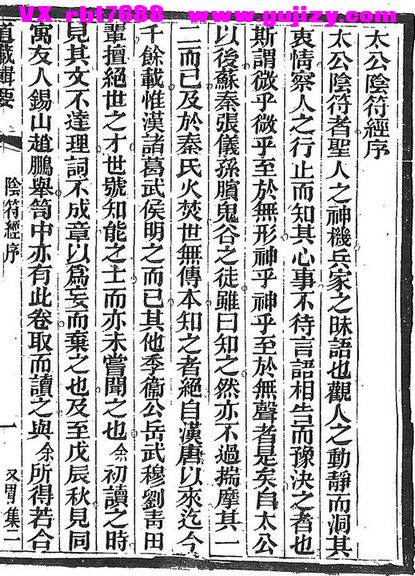 VX rbt7688 www.gujizy.com
太公陰符經序
太公陰符者聖人之神機兵家之昧語也觀人之動靜而洞其
衷情察人之行止而知其心事不待言語相告而豫決之者也
斯謂微乎微乎至於無形神乎神乎至於無聲者是矣自太公
以後蘇秦張儀孫臏鬼谷之徒雖曰知之然亦不過揣摩其一
二而已及於秦氏火焚世無傳本知之者絕自漢唐以來迄今
千餘載惟漢諸葛武侯明之而已其他李衞公岳武穆劉靑田
輩擅絕世之才世號知能之士而亦未嘗聞之也余初讀之時
見其文不達理詞不成章以爲妄而棄之也及至戊辰秋見同
寓友人錫山趙鵬舉笥中亦有此卷取而讀之與余所得若合
道藏輯要
陰符經序
一
又胃集二